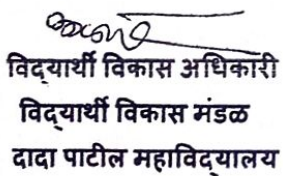 विद्यार्थी विकास अधिकारी
विद्यार्थी विकास मंडळ
दादा पाटील महाविद्यालय